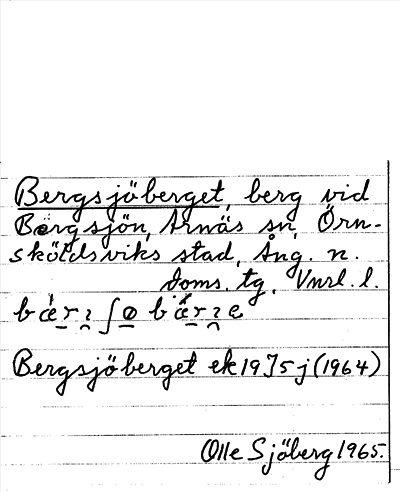 Bergsjöberget, berg vid
Bergsjön, Arnäs sn, Örn-
sköldsviks stad, Ång. n.
doms. tg. Vnrl. l.
Bergsjöberget ek 19J5j (1964)
Olle Sjöberg 1965.